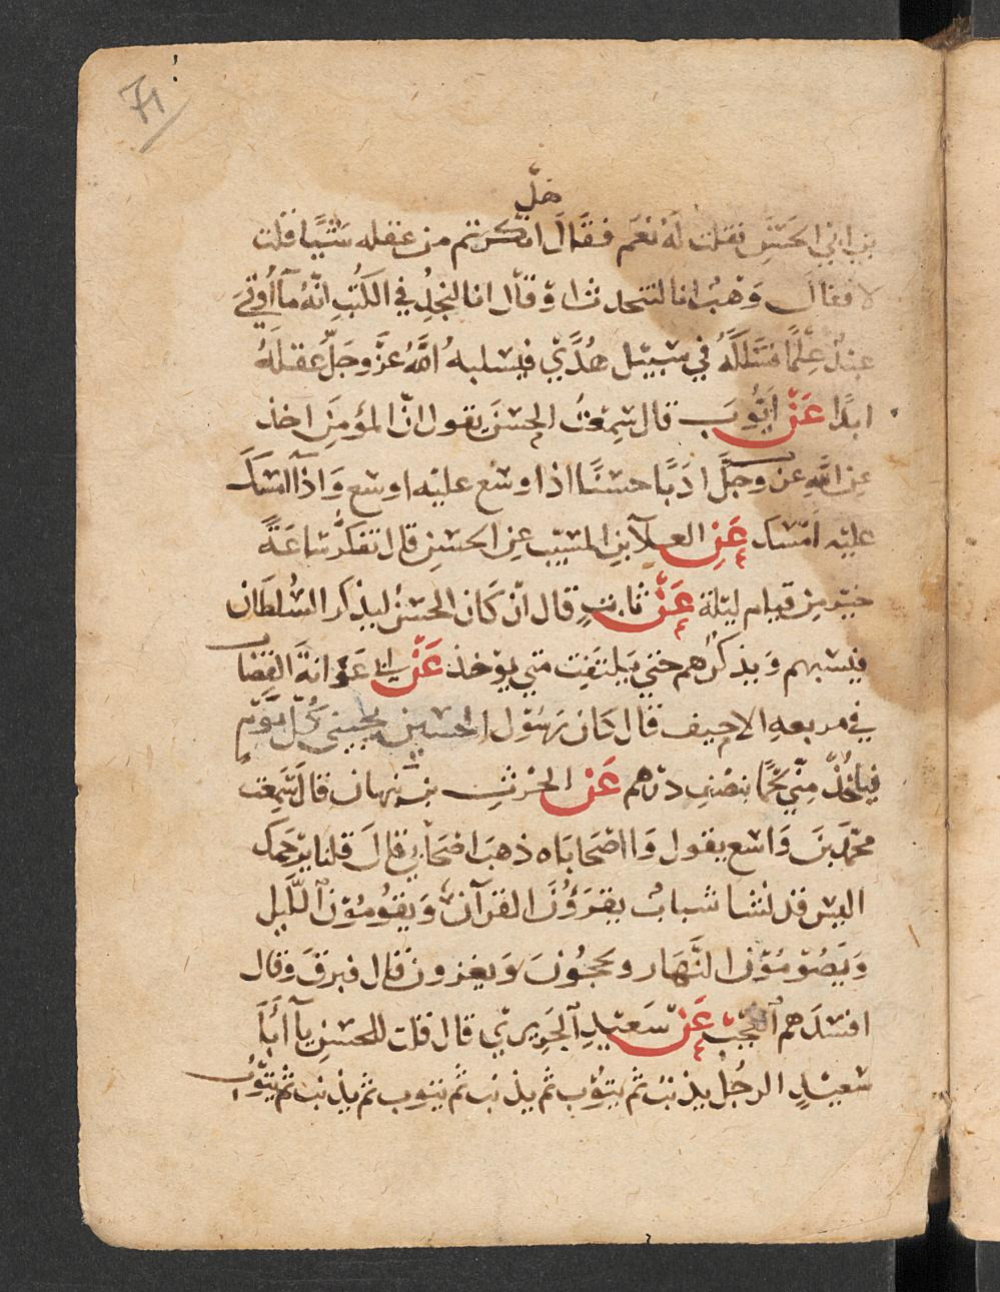 71
هل
بن ابي الحسن فقلت له نعم فقال انكرتم من عقله شيا قلت
لا فقال وهب انا لنتحدث او قال انا لنجد في الكتب انه ما اوتي
عبد علما فسلكه في سبيل هدى فيسلبه الله عز وجل عقله
ابدا عن ايوب قال سمعت الحسن يقول ان المؤمن اخذ
عن الله عز وجل ادبا حسنا اذا وسع عليه اوسع واذا امسك
عليه امسك عن العلا بن المسيب عن الحسن قال تفكر ساعة
خير من قيام ليلة عن ثابت قال ان كان الحسن ليذكر السلطان
فيسبهم ويذكرهم حتي يلتفت متي يوخذ عن ابي عوانة القصا
في مربعه الاحيف قال كان رسول الحسن يجيني كل يوم
فياخذ مني لحما بنصف درهم عن الحرث بن نبهان قال سمعت
محمد بن واسع يقول وا اصحاباه ذهب اصحابي قال قلنا يرحمك
اليس قد نشا شباب يقرؤون القرآن ويقومون الليل
ويصومون النهار ويحجون ويغزون قال فبزق وقال
افسدهم العجب عن سعيد الجريري قال قلت للحسن يا ابا
سعيد الرجل يذنب ثم يتوب ثم يذنب ثم يتوب ثم يذنب ثم يتوب